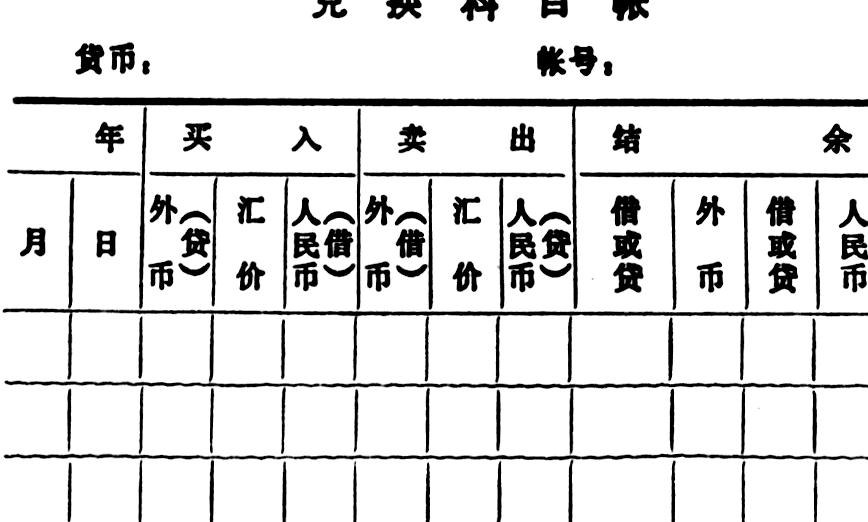 兑换科目帐
货币： 帐号：
年 买入 卖出 结余
月 日 外币（贷） 汇价 人民币（借） 外币（借） 汇价 人民币（贷） 借或贷 外币 借或贷 人民币